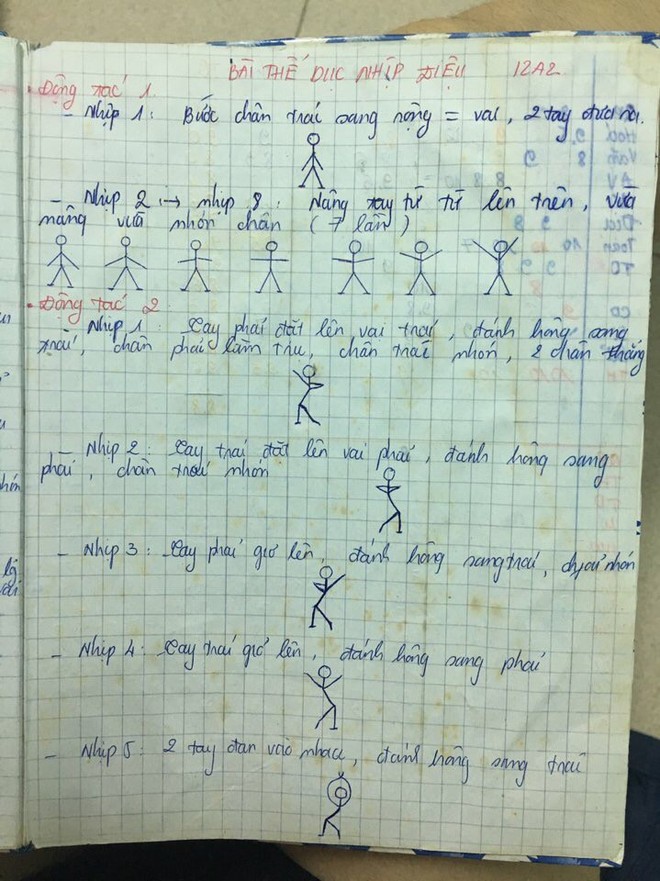 BÀI THỂ DỤC NHỊP ĐIỆU 12A2
Động tác 1
- Nhịp 1: Bước chân trái sang rộng = vai, 2 tay đưa ra.
- Nhịp 2 → nhịp 8: Nâng tay từ từ lên trên, vừa
nâng vừa nhón chân (7 lần)
Động tác 2
- Nhịp 1: Tay phải đặt lên vai trái, đánh hông sang
trái, chân phải làm trụ, chân trái nhón, 2 chân thẳng
- Nhịp 2: Tay trái đặt lên vai phải, đánh hông sang
phải, chân trái nhón
- Nhịp 3: Tay phải giơ lên, đánh hông sang trái, nhón
- Nhịp 4: Tay trái giơ lên, đánh hông sang phải
- Nhịp 5: 2 tay đan vào nhau, đánh hông sang trái